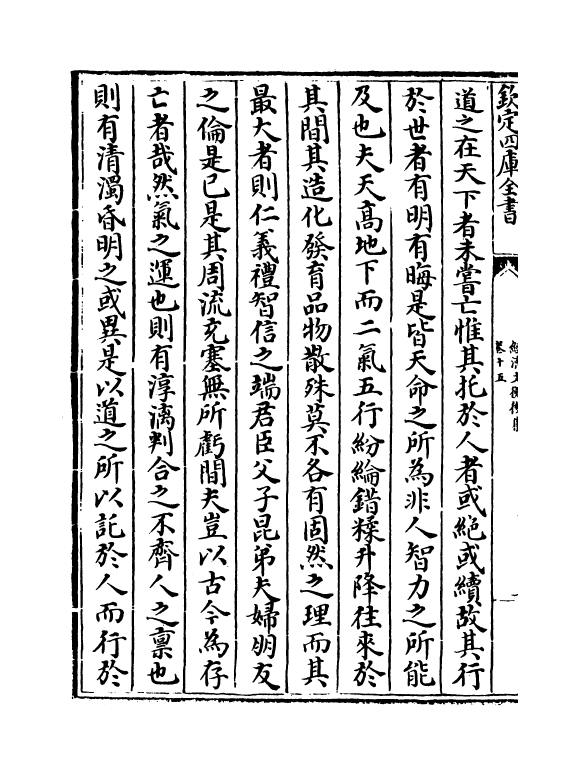 欽定四庫全書
卷十五
道之在天下者未嘗亡惟其托於人者或絶或續故其行
於世者有明有晦是皆天命之所為非人智力之所能
及也夫天髙地下而二氣五行紛綸錯糅升降往來於
其間其造化發育品物散殊莫不各有固然之理而其
最大者則仁義禮智信之端君臣父子昆弟夫婦朋友
之倫是已是其周流充塞無所虧間夫豈以古今為存
亡者哉然氣之運也則有淳漓判合之不齊人之禀也
則有清濁昏明之或異是以道之所以託於人而行於